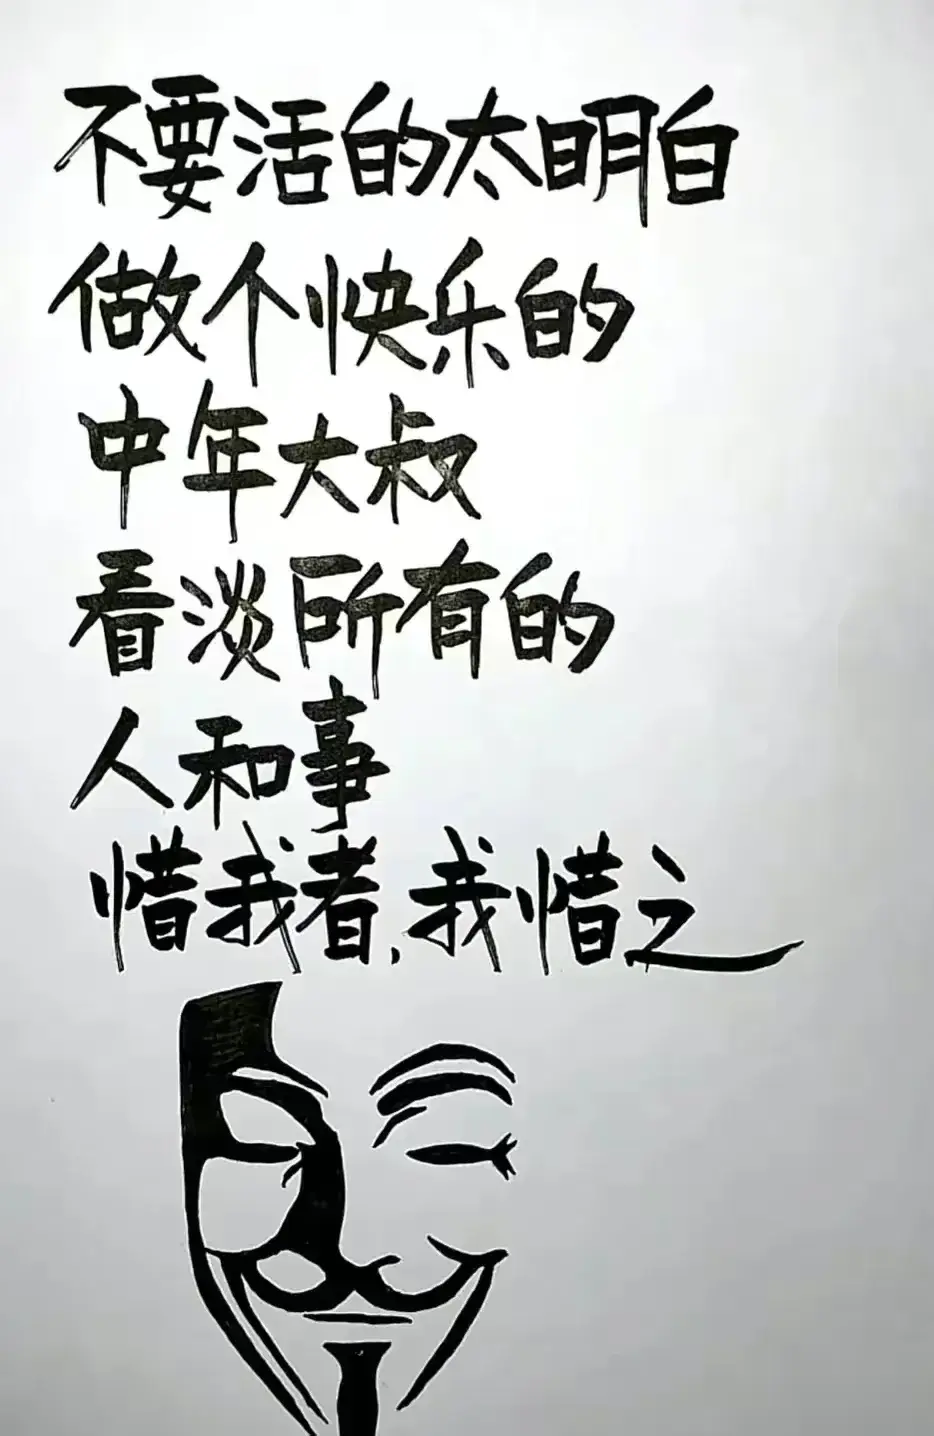 不要活的太明白
做个快乐的
中年大叔
看淡所有的
人和事
惜我者,我惜之